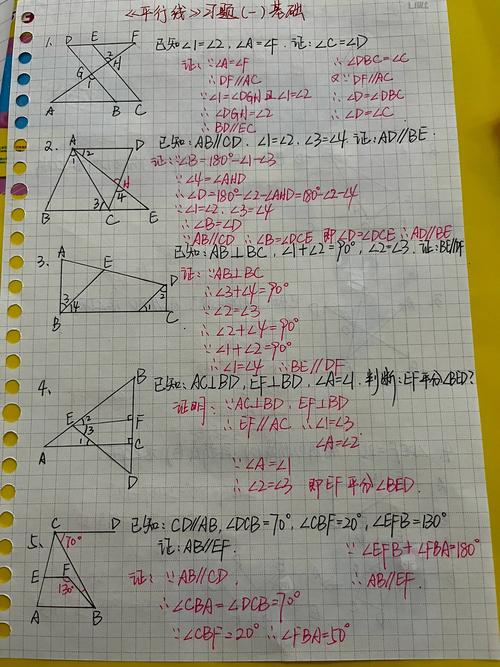 《平行线》习题(一)基础
1. 已知∠1=∠2, ∠A=∠F. 证: ∠C=∠D
D E F
2 H
G 1
A B C
证: ∵∠A=∠F
∴DF//AC
∵∠1=∠DGH 且∠1=∠2
∴∠DGH=∠2
∴BD//EC
∴∠DBC=∠C
又∵DF//AC
∴∠D=∠DBC
∴∠D=∠C
2. 已知: AB//CD, ∠1=∠2, ∠3=∠4. 证: AD//BE.
A D
1 2
H
3 4
B C E
证: ∵∠B=180°-∠1-∠3
∵∠4=∠AHD
∴∠D=180°-∠2-∠AHD=180°-∠2-∠4
∵∠1=∠2, ∠3=∠4
∴∠B=∠D
∵AB//CD ∴∠B=∠DCE 即∠D=∠DCE ∴AD//BE
3. 已知: AB⊥BC, ∠1+∠2=90°, ∠2=∠3. 证: BE//DF
A E
D
2
3 4 1
B C
证: ∵AB⊥BC
∴∠3+∠4=90°
∵∠2=∠3
∴∠2+∠4=90°
∵∠1+∠2=90°
∴∠1=∠4 ∴BE//DF
4. 已知: AC⊥BD, EF⊥BD, ∠A=∠1. 判断: EF平分∠BED?
B
E 2 F
3
1 C
A
D
证明: ∵AC⊥BD, EF⊥BD
∴EF//AC ∴∠1=∠3
∠A=∠2
∵∠A=∠1
∴∠2=∠3 即EF平分∠BED.
5. 已知: CD//AB, ∠DCB=70°, ∠CBF=20°, ∠EFB=130°
证: AB//EF.
C D
70°
E F
130°
A B
证: ∵AB//CD
∴∠CBA=∠DCB=70°
∵∠CBF=20° ∴∠FBA=50°
∵∠EFB+∠FBA=180°
∴AB//EF.